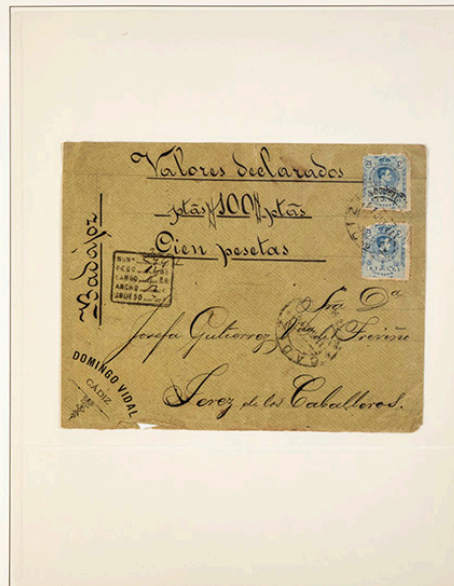 Valores declarados
ptas 100 ptas
Cien pesetas
Badajoz
NUM
PESO
LARGO
ANCHO
GRUESO
Sra Dª
Josefa Gutierrez Vda de Treviño
Jerez de los Caballeros.
DOMINGO VIDAL
CÁDIZ